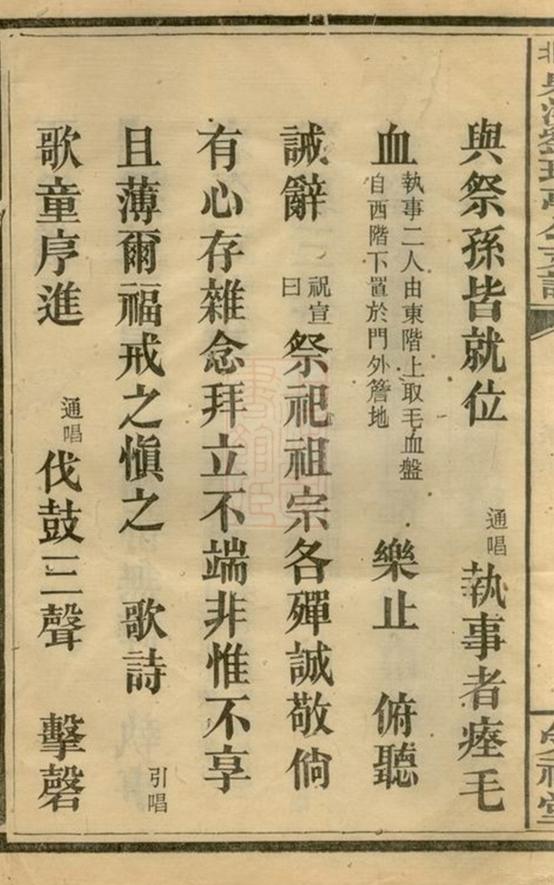 與祭孫皆就位 通唱 執事者瘞毛
血 執事二人由東階上取毛血盤自西階下置於門外簷地 樂止 俯聽
誡辭 祝宣曰 祭祀祖宗各殫誠敬倘
有心存雜念拜立不端非惟不享
且薄爾福戒之愼之 歌詩 引唱
歌童序進 通唱 伐鼓三聲 擊磬